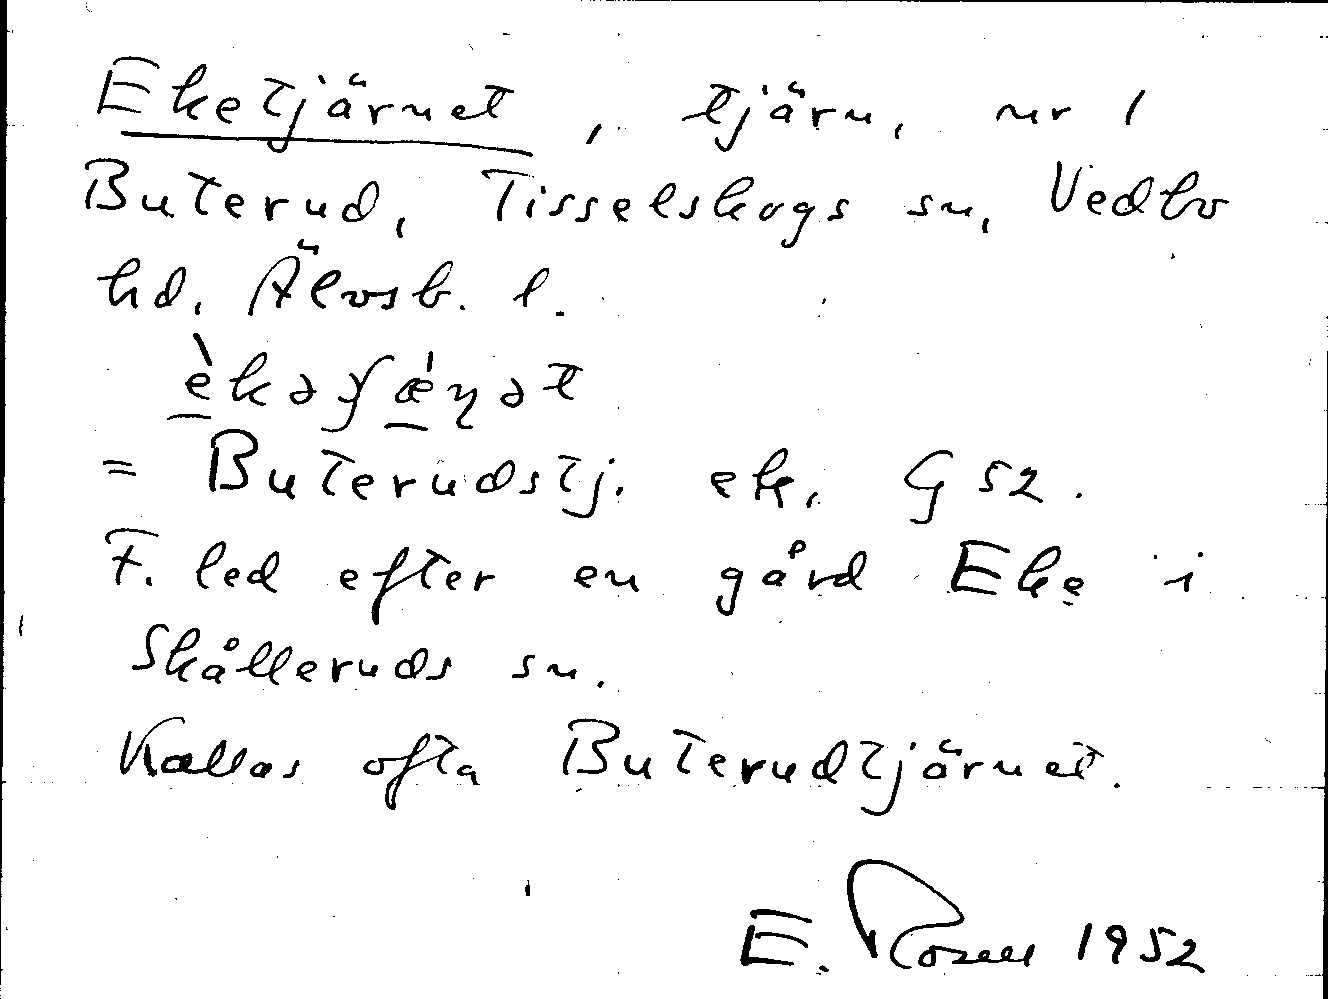 Eketjärnet, tjärn, nr 1
Buterud, Tisselskogs sn, Vedbo
hd. Älvsb. l.
= Buterudstj. ek. G 52.
F. led efter en gård Eke i
Skålleruds sn.
Kallas ofta Buterudtjärnet.
E. Rosen 1952